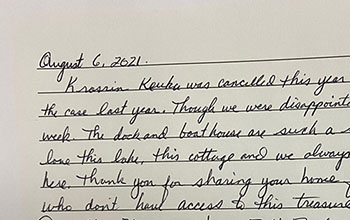 August 6, 2021.
Krossin Keuka was cancelled this year
the case last year. Though we were disappointe
week. The dock and boathouse are such a s
love this lake, this cottage and we always
here. Thank you for sharing your home
who don't have access to this treasure